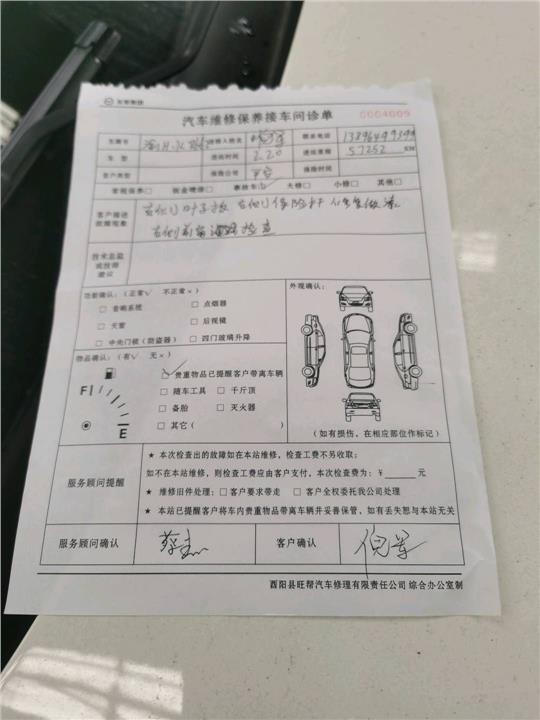 汽车维修保养接车问诊单
0004009
车牌号 送修人姓名 联系电话
车型 进站时间 2.20 进站里程 57252 KM
客户类型 保险公司 平安 保险时间
常规保养□ 钣金喷漆□ 事故车□ 大修□ 小修□ 其他□
客户描述
故障现象
右侧叶子板 右侧 保险杠
右侧前 检查
技术总监
或技师
建议
功能确认:(正常√ 不正常×)
外观确认:
□ 音响系统 □ 点烟器
□ 天窗 □ 后视镜
□ 中央门锁(防盗器) □ 四门玻璃升降
物品确认:(有√ 无×)
□ 贵重物品已提醒客户带离车辆
F
□ 随车工具 □ 千斤顶
□ 备胎 □ 灭火器
E
□ 其它( )
(如有损伤,在相应部位作标记)
服务顾问提醒
★ 本次检查出的故障如在本站维修,检查工费不另收取;
如不在本站维修,则检查工费应由客户支付,本次检查费为:¥ 元
★ 维修旧件处理:□ 客户要求带走 □ 客户全权委托我公司处理
★ 本站已提醒客户将车内贵重物品带离车辆并妥善保管,如有丢失恕与本站无关
服务顾问确认 客户确认 倪军
酉阳县旺帮汽车修理有限责任公司 综合办公室制